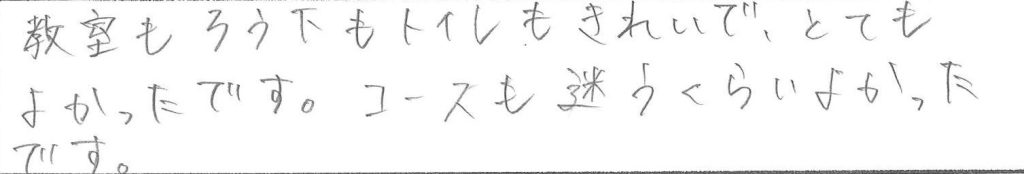 教室もろう下もトイレもきれいで、とても
よかったです。コースも迷うくらいよかった
です。